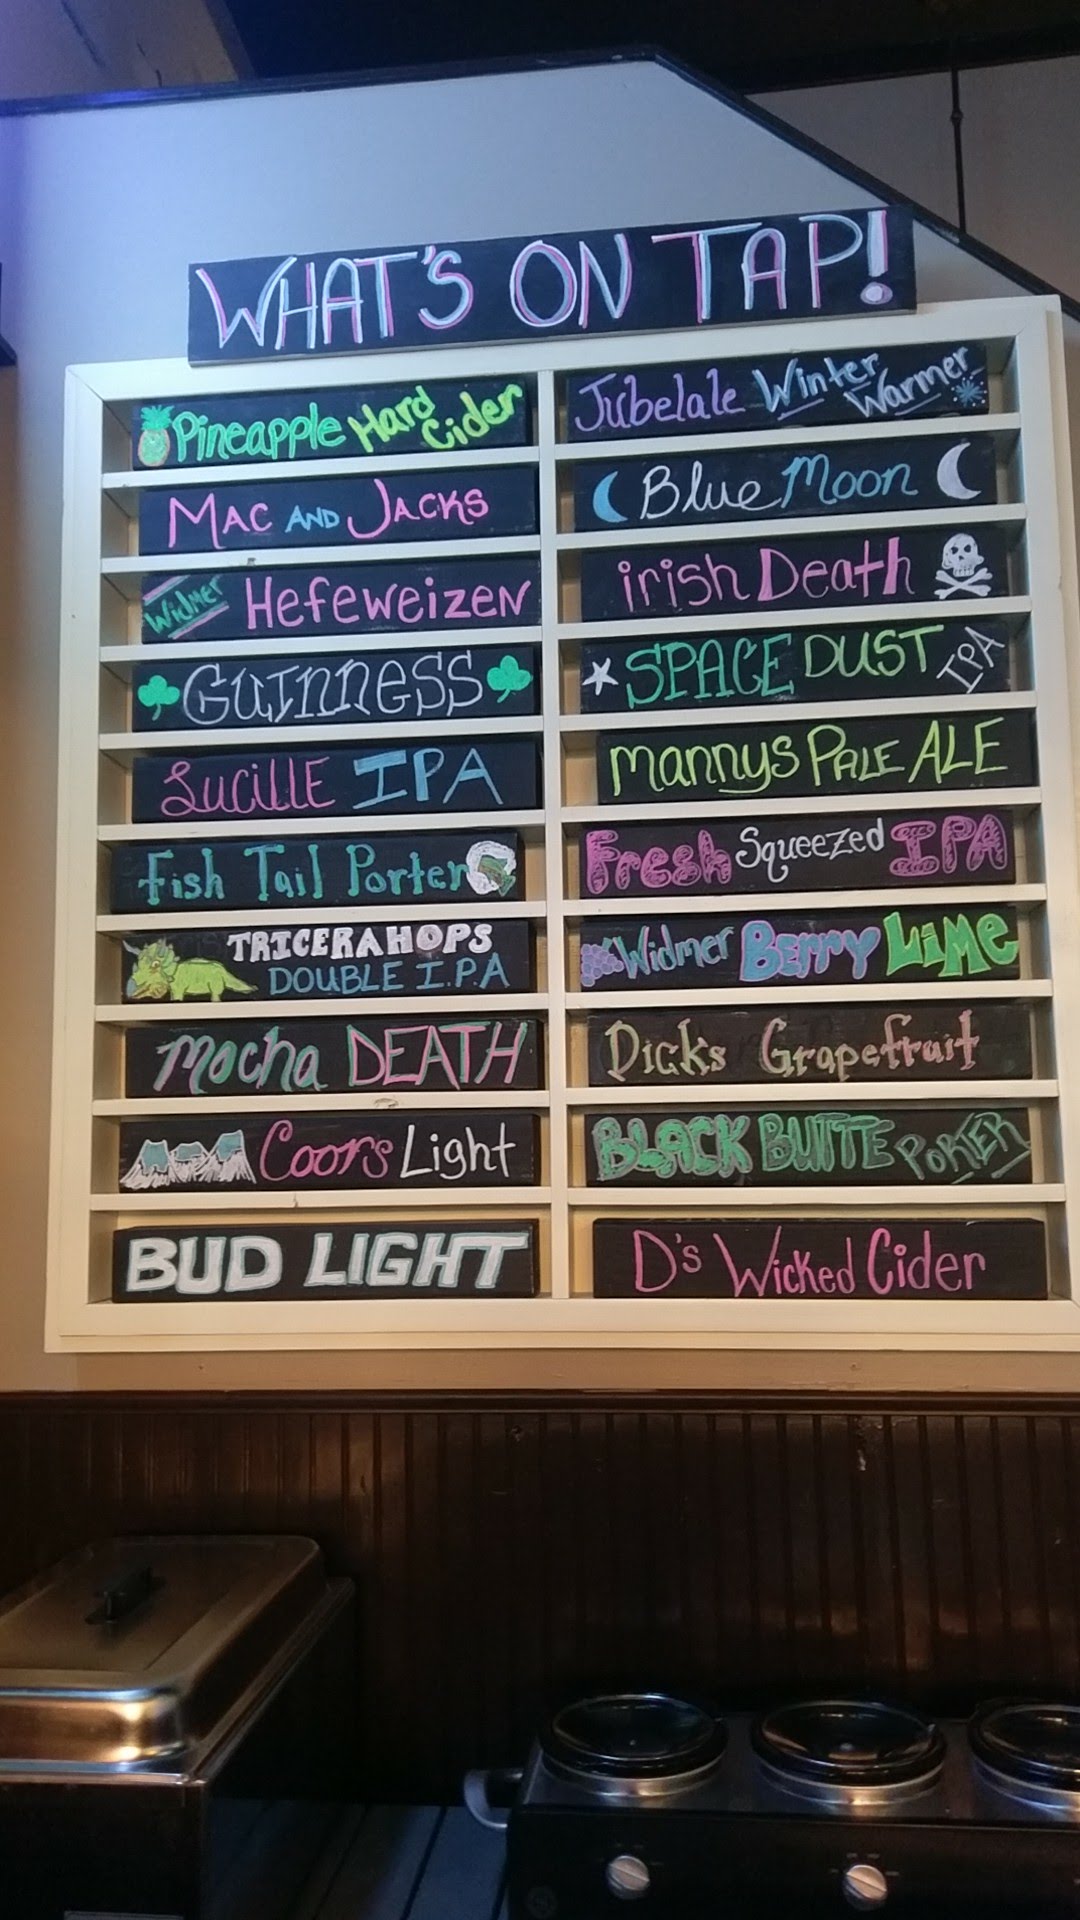 WHAT'S ON TAP!
Pineapple Hard Cider
Mac and Jacks
Widmer Hefeweizen
Guinness
Lucille IPA
Fish Tail Porter
TRICERAHOPS
DOUBLE I.P.A
Mocha DEATH
Coors Light
BUD LIGHT
Jubelale Winter Warmer
Blue Moon
irish Death
SPACE DUST IPA
Mannys Pale ALE
Fresh Squeezed IPA
Widmer Berry Lime
Dicks Grapefruit
BLACK BUTTE PORTER
D's Wicked Cider